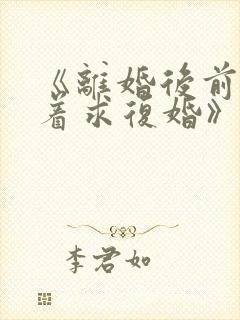 《離婚後前
着求復婚》
李君如